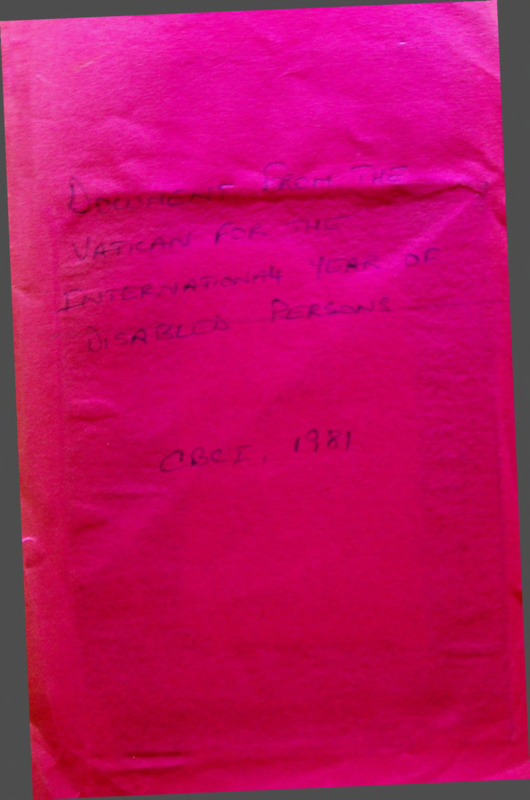 DOCUMENT FROM THE
VATICAN FOR THE
INTERNATIONAL YEAR OF
DISABLED PERSONS
CBCI, 1981